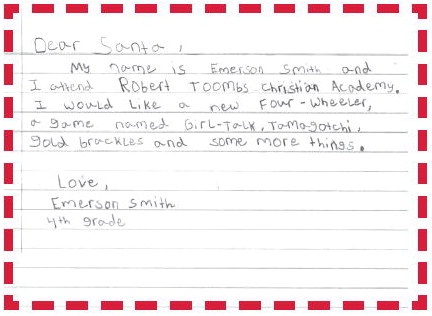 Dear Santa,
My name is Emerson Smith and
I attend Robert Toombs Christian Academy.
I would like a new Four-wheeler,
a game named Girl-Talk, Tamagotchi,
gold brackles and some more things.
Love,
Emerson Smith
4th grade